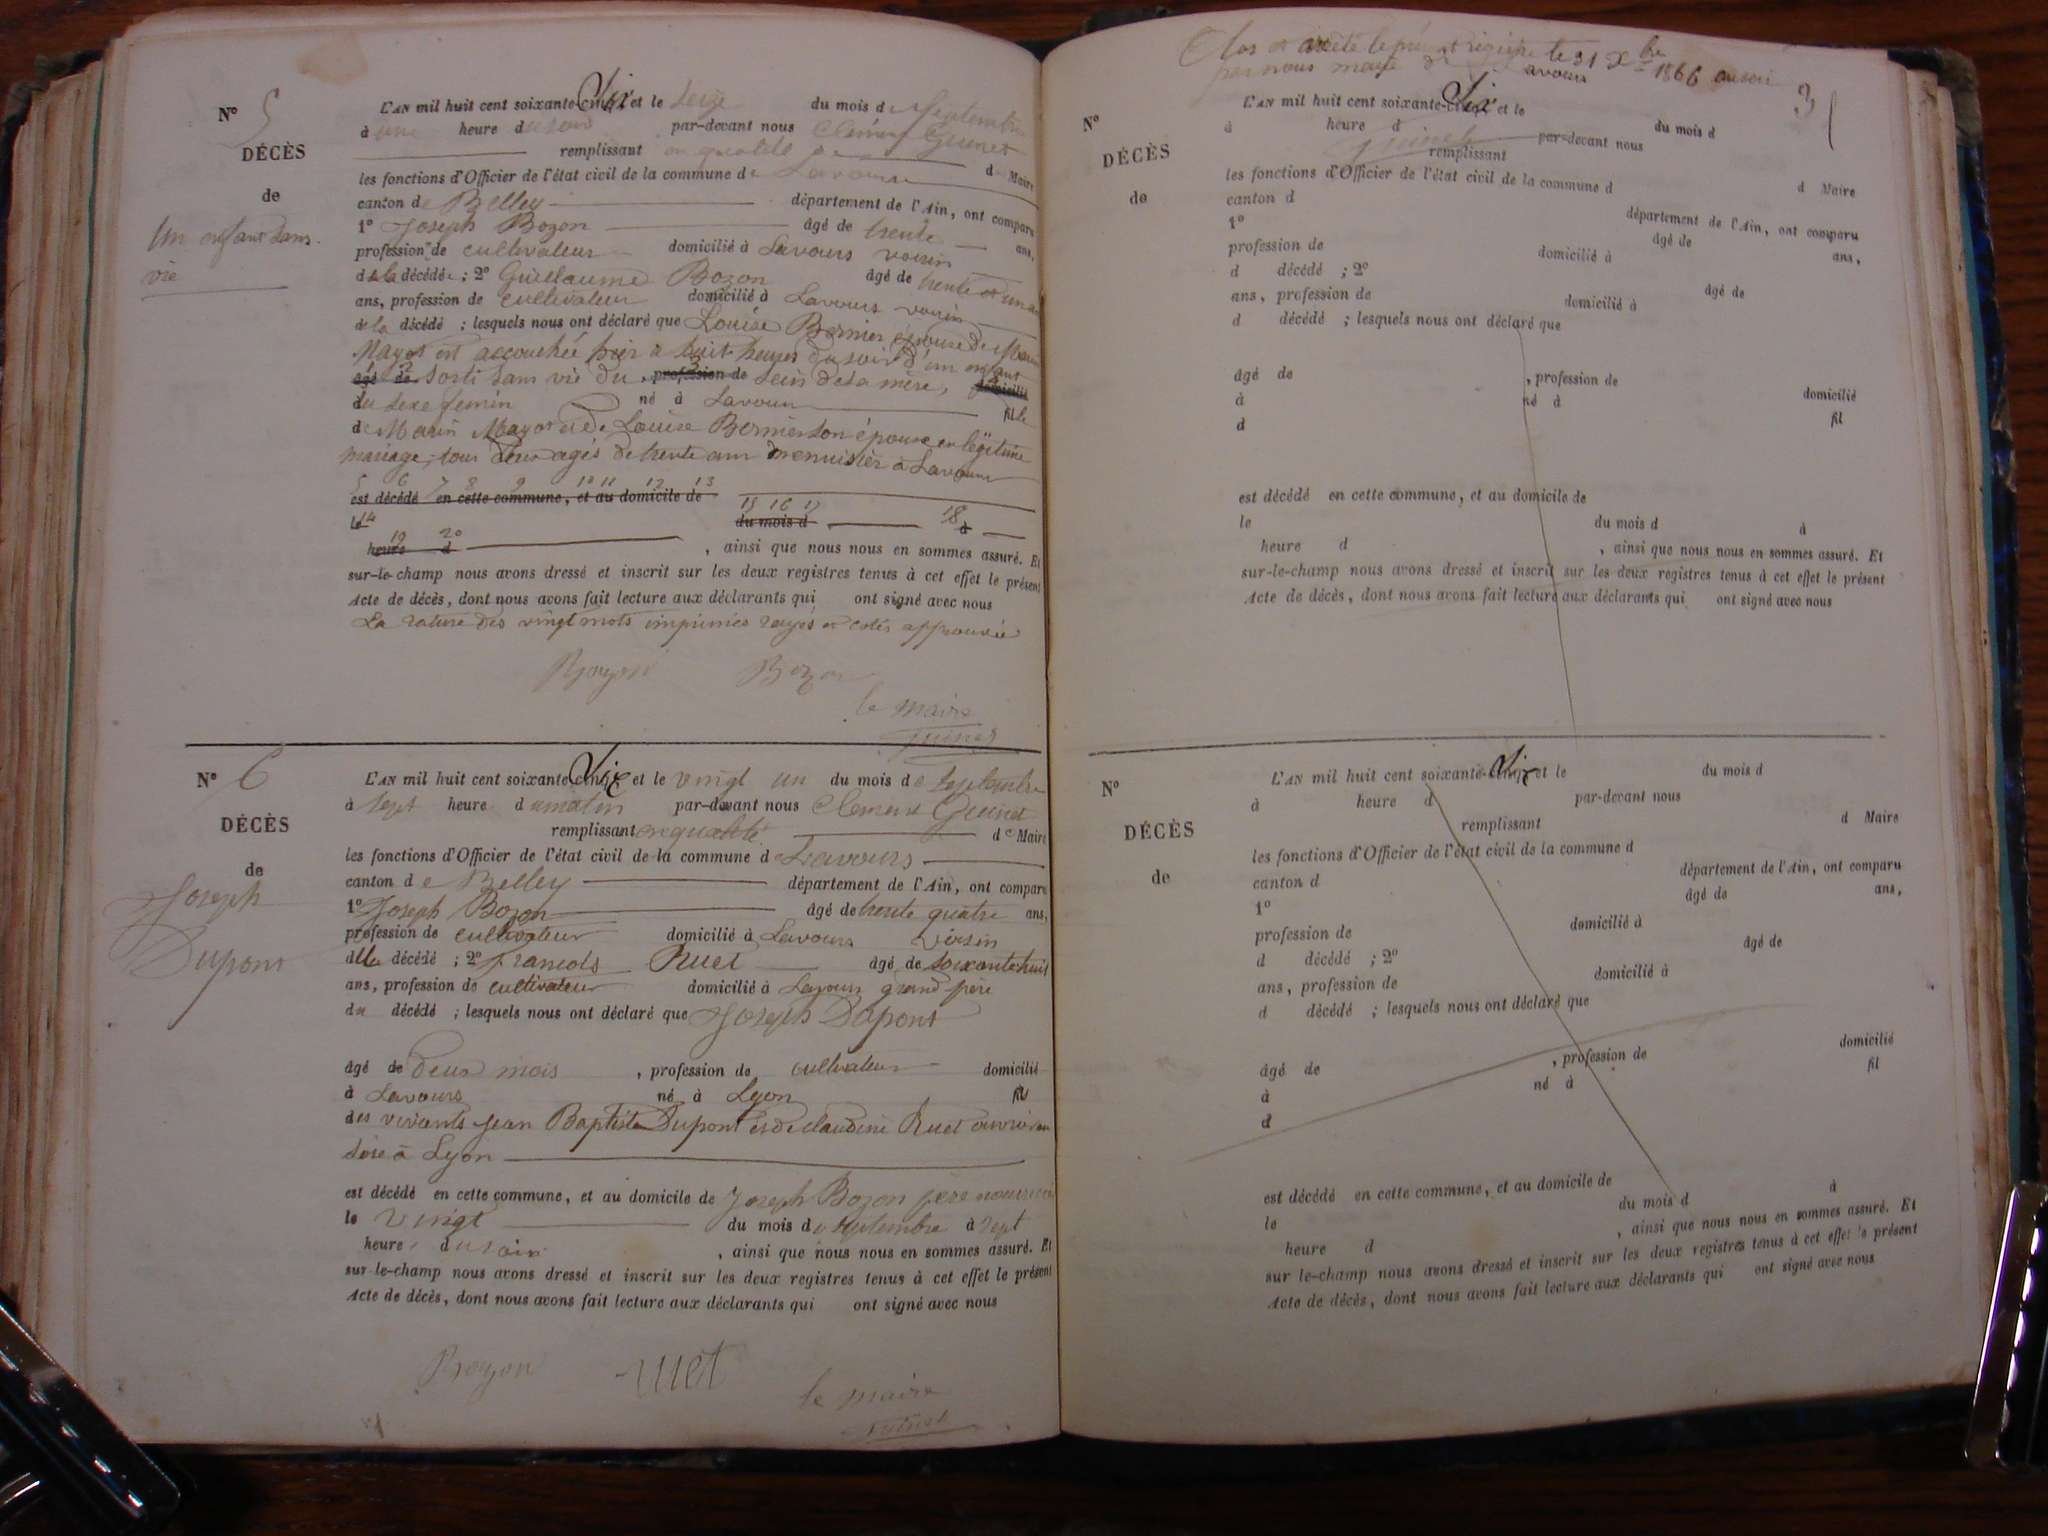 N° 5
DÉCÈS
de
Un enfant sans
vie
L'AN mil huit cent soixante-cinq Six et le Seize du mois de Septembre
à une heure du soir par-devant nous Clément Guinet
remplissant en qualité de d Maire
les fonctions d'Officier de l'état civil de la commune de Lavours
canton de Belley département de l'Ain, ont comparu
1° Joseph Bozon âgé de trente ans,
profession de cultivateur domicilié à Lavours voisin
de la décédée ; 2° Guillaume Bozon âgé de trente et un
ans, profession de cultivateur domicilié à Lavours voisin
de la décédé ; lesquels nous ont déclaré que Louise Bernier épouse de Marin
Mayot est accouchée hier à huit heures du soir d'un enfant
âgé de sorti sans vie du , profession de sein de sa mère, domicilié
du sexe féminin né à Lavours fille
de Marin Mayot et de Louise Bernier son épouse en légitime
mariage, tous deux agés de trente ans menuisier à Lavours
5 6 7 8 9 10 11 12 13
est décédé en cette commune, et au domicile de
15 16 17 18
le 14 du mois d à
19 20
heure d , ainsi que nous nous en sommes assuré. Et
sur-le-champ nous avons dressé et inscrit sur les deux registres tenus à cet effet le présent
Acte de décès, dont nous avons fait lecture aux déclarants qui ont signé avec nous
La rature des vingt mots imprimés rayés et cotés approuvée
Bozon Bozon
le maire
Guinet
N° 6
DÉCÈS
de
Joseph
Dupont
L'AN mil huit cent soixante-cinq Six et le vingt un du mois de septembre
à sept heure du matin par-devant nous Clement Guinet
remplissant en qualité de Maire
les fonctions d'Officier de l'état civil de la commune d Lavours
canton de Belley département de l'Ain, ont comparu
1° Joseph Bozon âgé de trente quatre ans,
profession de cultivateur domicilié à Lavours voisin
décédé ; 2° François Ruet âgé de soixante huit
ans, profession de cultivateur domicilié à Lavours grand père
du décédé ; lesquels nous ont déclaré que Joseph Dupont
âgé de deux mois , profession de cultivateur domicilié
à Lavours né à Lyon fils
des vivants Jean Baptiste Dupont et de claudine Ruet ouvrier en
soie à Lyon
est décédé en cette commune, et au domicile de Joseph Bozon père nourricier
le vingt du mois de septembre à sept
heure du soir , ainsi que nous nous en sommes assuré. Et
sur-le-champ nous avons dressé et inscrit sur les deux registres tenus à cet effet le présent
Acte de décès, dont nous avons fait lecture aux déclarants qui ont signé avec nous
Bozon Ruet
le maire
Guinet
Clos et arrêté le présent régistre le 31 Xbre 1866 au soir
par nous maire de Lavours
3
N°
DÉCÈS
de
L'AN mil huit cent soixante-cinq Six et le du mois d
à heure d par-devant nous
Guinet
remplissant d Maire
les fonctions d'Officier de l'état civil de la commune d
canton d département de l'Ain, ont comparu
1° âgé de ans,
profession de domicilié à
d décédé ; 2° âgé de
ans, profession de domicilié à
d décédé ; lesquels nous ont déclaré que
âgé de , profession de domicilié
à né à fil
d
est décédé en cette commune, et au domicile de
le du mois d à
heure d , ainsi que nous nous en sommes assuré. Et
sur-le-champ nous avons dressé et inscrit sur les deux registres tenus à cet effet le présent
Acte de décès, dont nous avons fait lecture aux déclarants qui ont signé avec nous
N°
DÉCÈS
de
L'AN mil huit cent soixante-cinq Six et le du mois d
à heure d par-devant nous
remplissant d Maire
les fonctions d'Officier de l'état civil de la commune d
canton d département de l'Ain, ont comparu
1° âgé de ans,
profession de domicilié à
d décédé ; 2° âgé de
ans, profession de domicilié à
d décédé ; lesquels nous ont déclaré que
âgé de , profession de domicilié
à né à fil
d
est décédé en cette commune, et au domicile de
le du mois d à
heure d , ainsi que nous nous en sommes assuré. Et
sur le-champ nous avons dressé et inscrit sur les deux registres tenus à cet effet le présent
Acte de décès, dont nous avons fait lecture aux déclarants qui ont signé avec nous